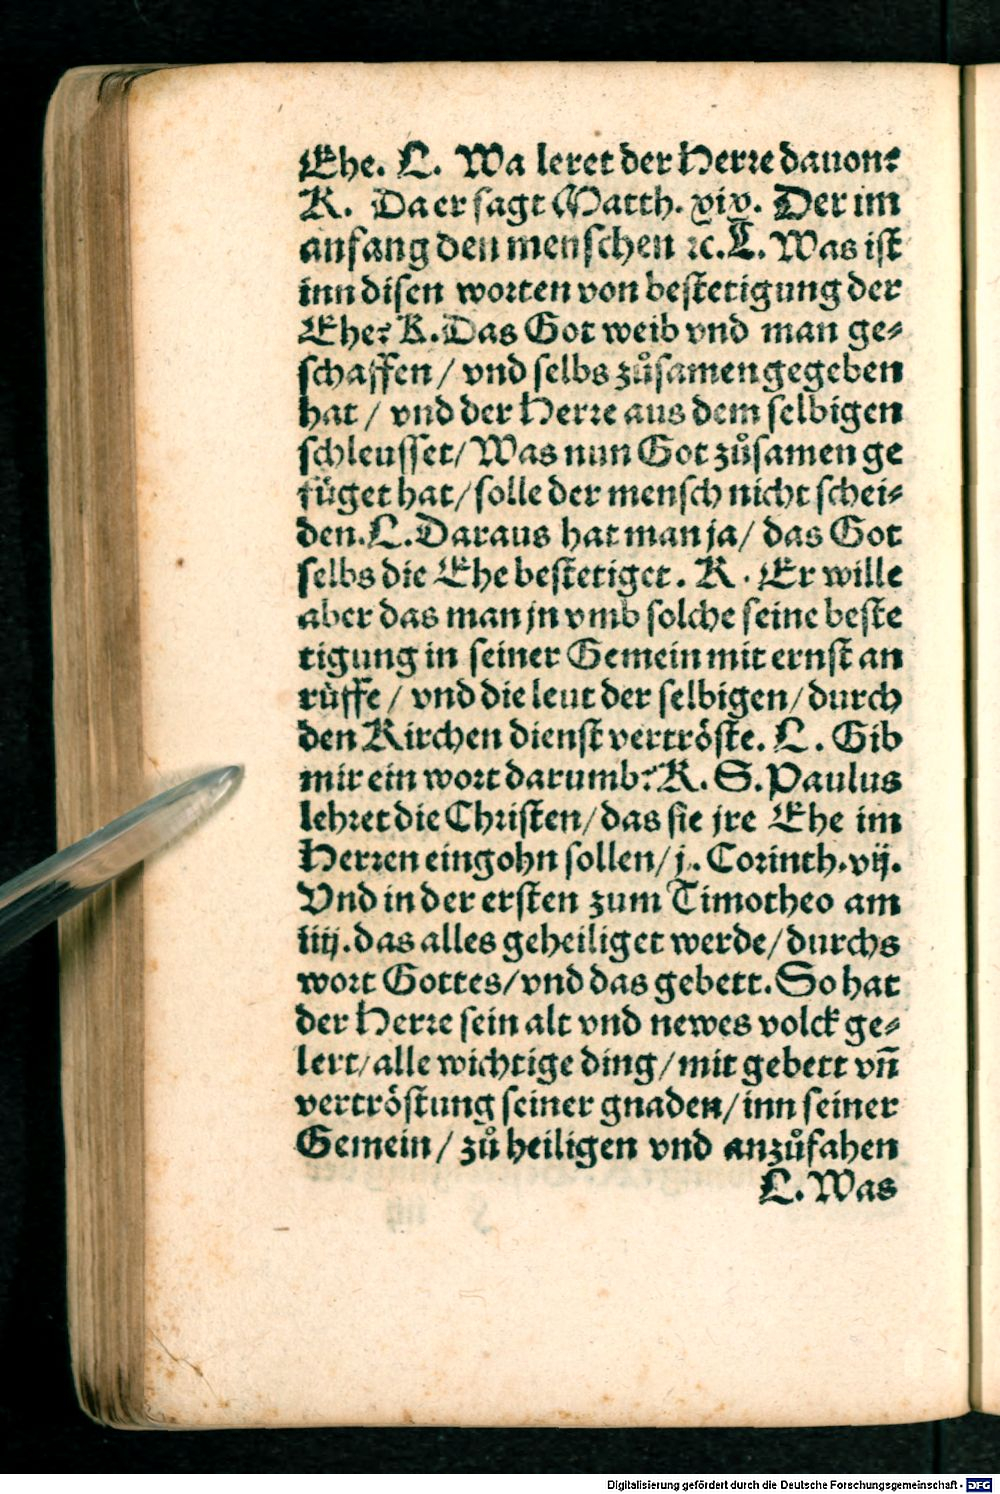 Ehe. L. Wa leret der Herre dauon?
K. Da er sagt Matth. xix. Der im
anfang den menschen ꝛc. L. Was ist
inn disen worten von bestetigung der
Ehe? K. Das Got weib vnd man ge⸗
schaffen / vnd selbs zůsamen gegeben
hat / vnd der Herre aus dem selbigen
schleusset/ Was nun Got zůsamen ge
füget hat/ solle der mensch nicht schei⸗
den. L. Daraus hat man ja/ das Got
selbs die Ehe bestetiget. K. Er wille
aber das man jn vmb solche seine beste
tigung in seiner Gemein mit ernst an
rüffe / vnd die leut der selbigen/ durch
den Kirchen dienst vertröste. L. Gib
mir ein wort darumb? K. S. Paulus
lehret die Christen/ das sie jre Ehe im
Herren eingohn sollen/ j. Corinth. vij.
Vnd in der ersten zum Timotheo am
iiij. das alles geheiliget werde/ durchs
wort Gottes/ vnd das gebett. So hat
der Herre sein alt vnd newes volck ge⸗
lert/ alle wichtige ding/ mit gebett vñ
vertröstung seiner gnaden/ inn seiner
Gemein / zů heiligen vnd anzůfahen
L. Was
Digitalisierung gefördert durch die Deutsche Forschungsgemeinschaft - DFG